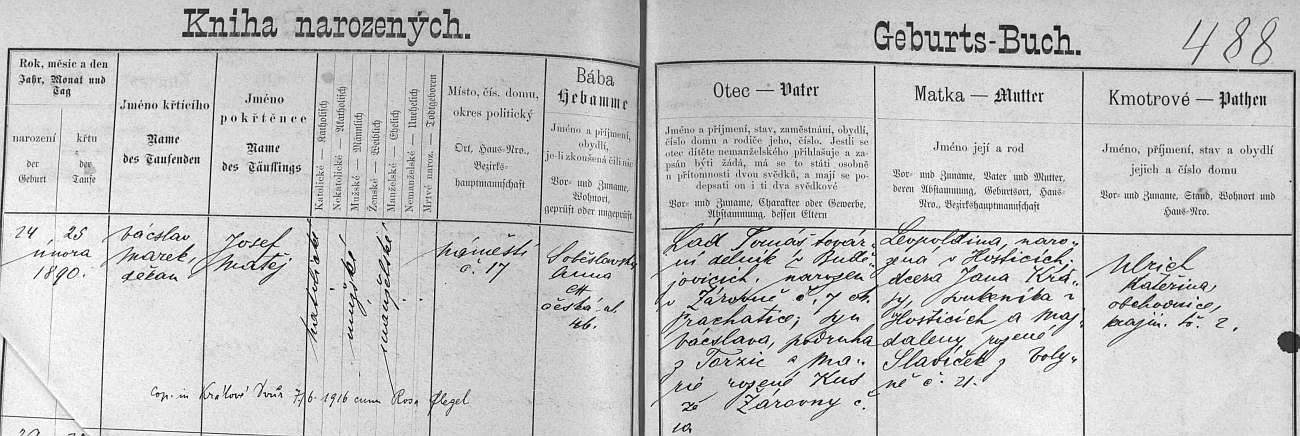 Kniha narozených.
Geburts-Buch.
488
Rok, měsíc a den
Jahr, Monat und
Tag
narození
der
Geburt
křtu
der
Taufe
Jméno křtícího
Name
des Taufenden
Jméno
pokřtěnce
Name
des Täuflings
Katolické — Katholisch
Nekatolické — Akatholisch
Mužské — Männlich
Ženské — Weiblich
Manželské — Ehelich
Nemanželské — Unehelich
Mrtvě naroz. — Todtgeboren
Místo, čís. domu,
okres politický
Ort, Haus-Nro.,
Bezirks-
hauptmannschaft
Bába
Hebamme
Jméno a příjmení,
obydlí,
je-li zkoušená čili nic
Vor- und Zuname,
Wohnort,
geprüft oder ungeprüft
Otec — Vater
Jméno a příjmení, stav, zaměstnání, obydlí,
číslo domu a rodiče jeho, číslo. Jestli se
otec dítěte nemanželského přihlašuje a za-
psán býti žádá, má se to státi osobně
u přítomnosti dvou svědků, a mají se po-
depsati on i ti dva svědkové
Vor- und Zuname, Charakter oder Gewerbe,
Abstammung, dessen Eltern
Matka — Mutter
Jméno její a rod
Vor- und Zuname, Vater und Mutter,
deren Abstammung, Geburtsort, Haus-
Nro., Bezirkshauptmannschaft
Kmotrové — Pathen
Jméno, příjmení, stav a obydlí
jejich a číslo domu
Vor- und Zuname, Stand, Wohnort und
Haus-Nro.
24 25
února
1890.
Václav
Marek,
děkan
Josef
Matěj
katolické
mužské
manželské
náměstí
č. 17
Soběslavsk
Anna
česká ul.
46.
Lád Tomáš továr-
ní dělník v Budě-
jovicích, narozen
v Žárovné č. 7 ok.
Prachatice; syn
Václava, podruha
z Torzic a Ma-
rie rozené Kus
ze Žárovny č.
10
Leopoldina, naro-
zena v Hosticích,
dcera Jana Krá-
sy, v
Hosticích a Mag-
daleny rozené
Slavíček z Voly-
ně č. 21.
Ulrich
Kateřina,
obchodnice,
krajin. tř. 2.
Cop. in Králové Dvůr 7/6. 1916 cum Rosa Flegel
29